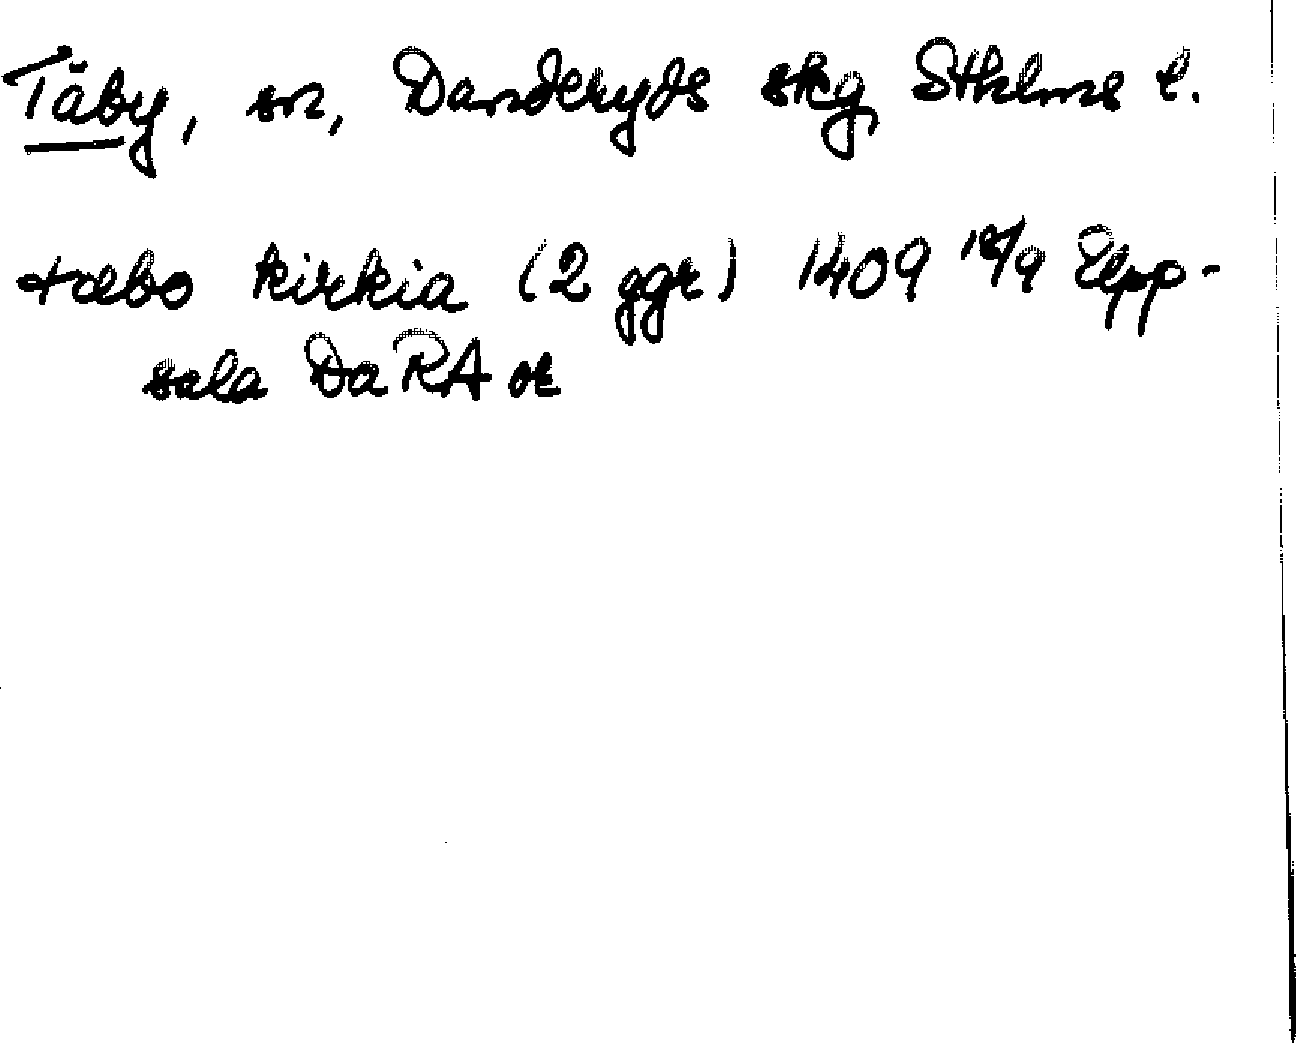 Täby, sn, Danderyds skg Sthlms l.
tæbo kirkia (2 ggr) 1409 18/9 Upp-
sala Da RA or